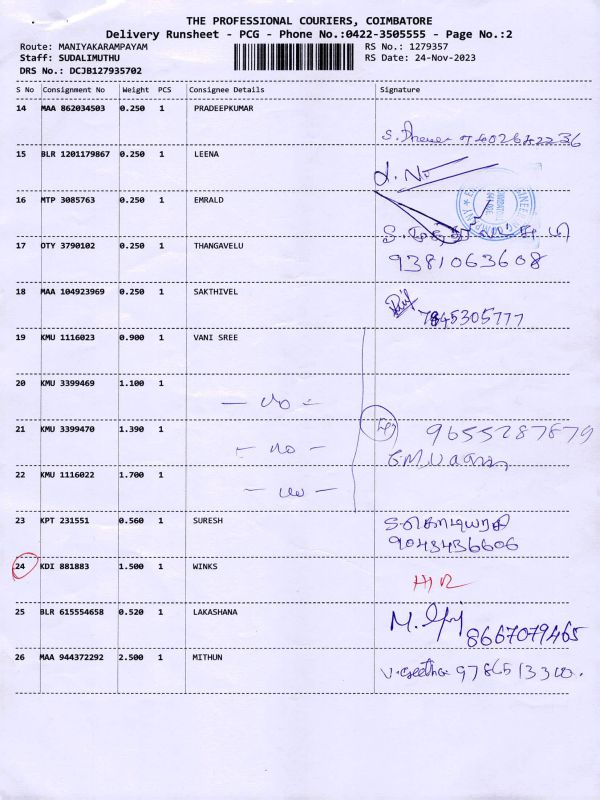 THE PROFESSIONAL COURIERS, COIMBATORE
Delivery Runsheet - PCG - Phone No.:0422-3505555 - Page No.:2
Route: MANIYAKARAMPAYAM RS No.: 1279357
Staff: SUDALIMUTHU RS Date: 24-Nov-2023
DRS No.: DCJB127935702
S No Consignment No Weight PCS Consignee Details Signature
14 MAA 862034503 0.250 1 PRADEEPKUMAR
15 BLR 1201179867 0.250 1 LEENA
16 MTP 3085763 0.250 1 EMRALD
17 OTY 3790102 0.250 1 THANGAVELU
9381063608
18 MAA 104923969 0.250 1 SAKTHIVEL
7845305777
19 KMU 1116023 0.900 1 VANI SREE
20 KMU 3399469 1.100 1
21 KMU 3399470 1.390 1
9655287879
— no —
22 KMU 1116022 1.700 1
23 KPT 231551 0.560 1 SURESH
9043436606
24 KDI 881883 1.500 1 WINKS
25 BLR 615554658 0.520 1 LAKASHANA
8667079465
26 MAA 944372292 2.500 1 MITHUN
V. Geetha